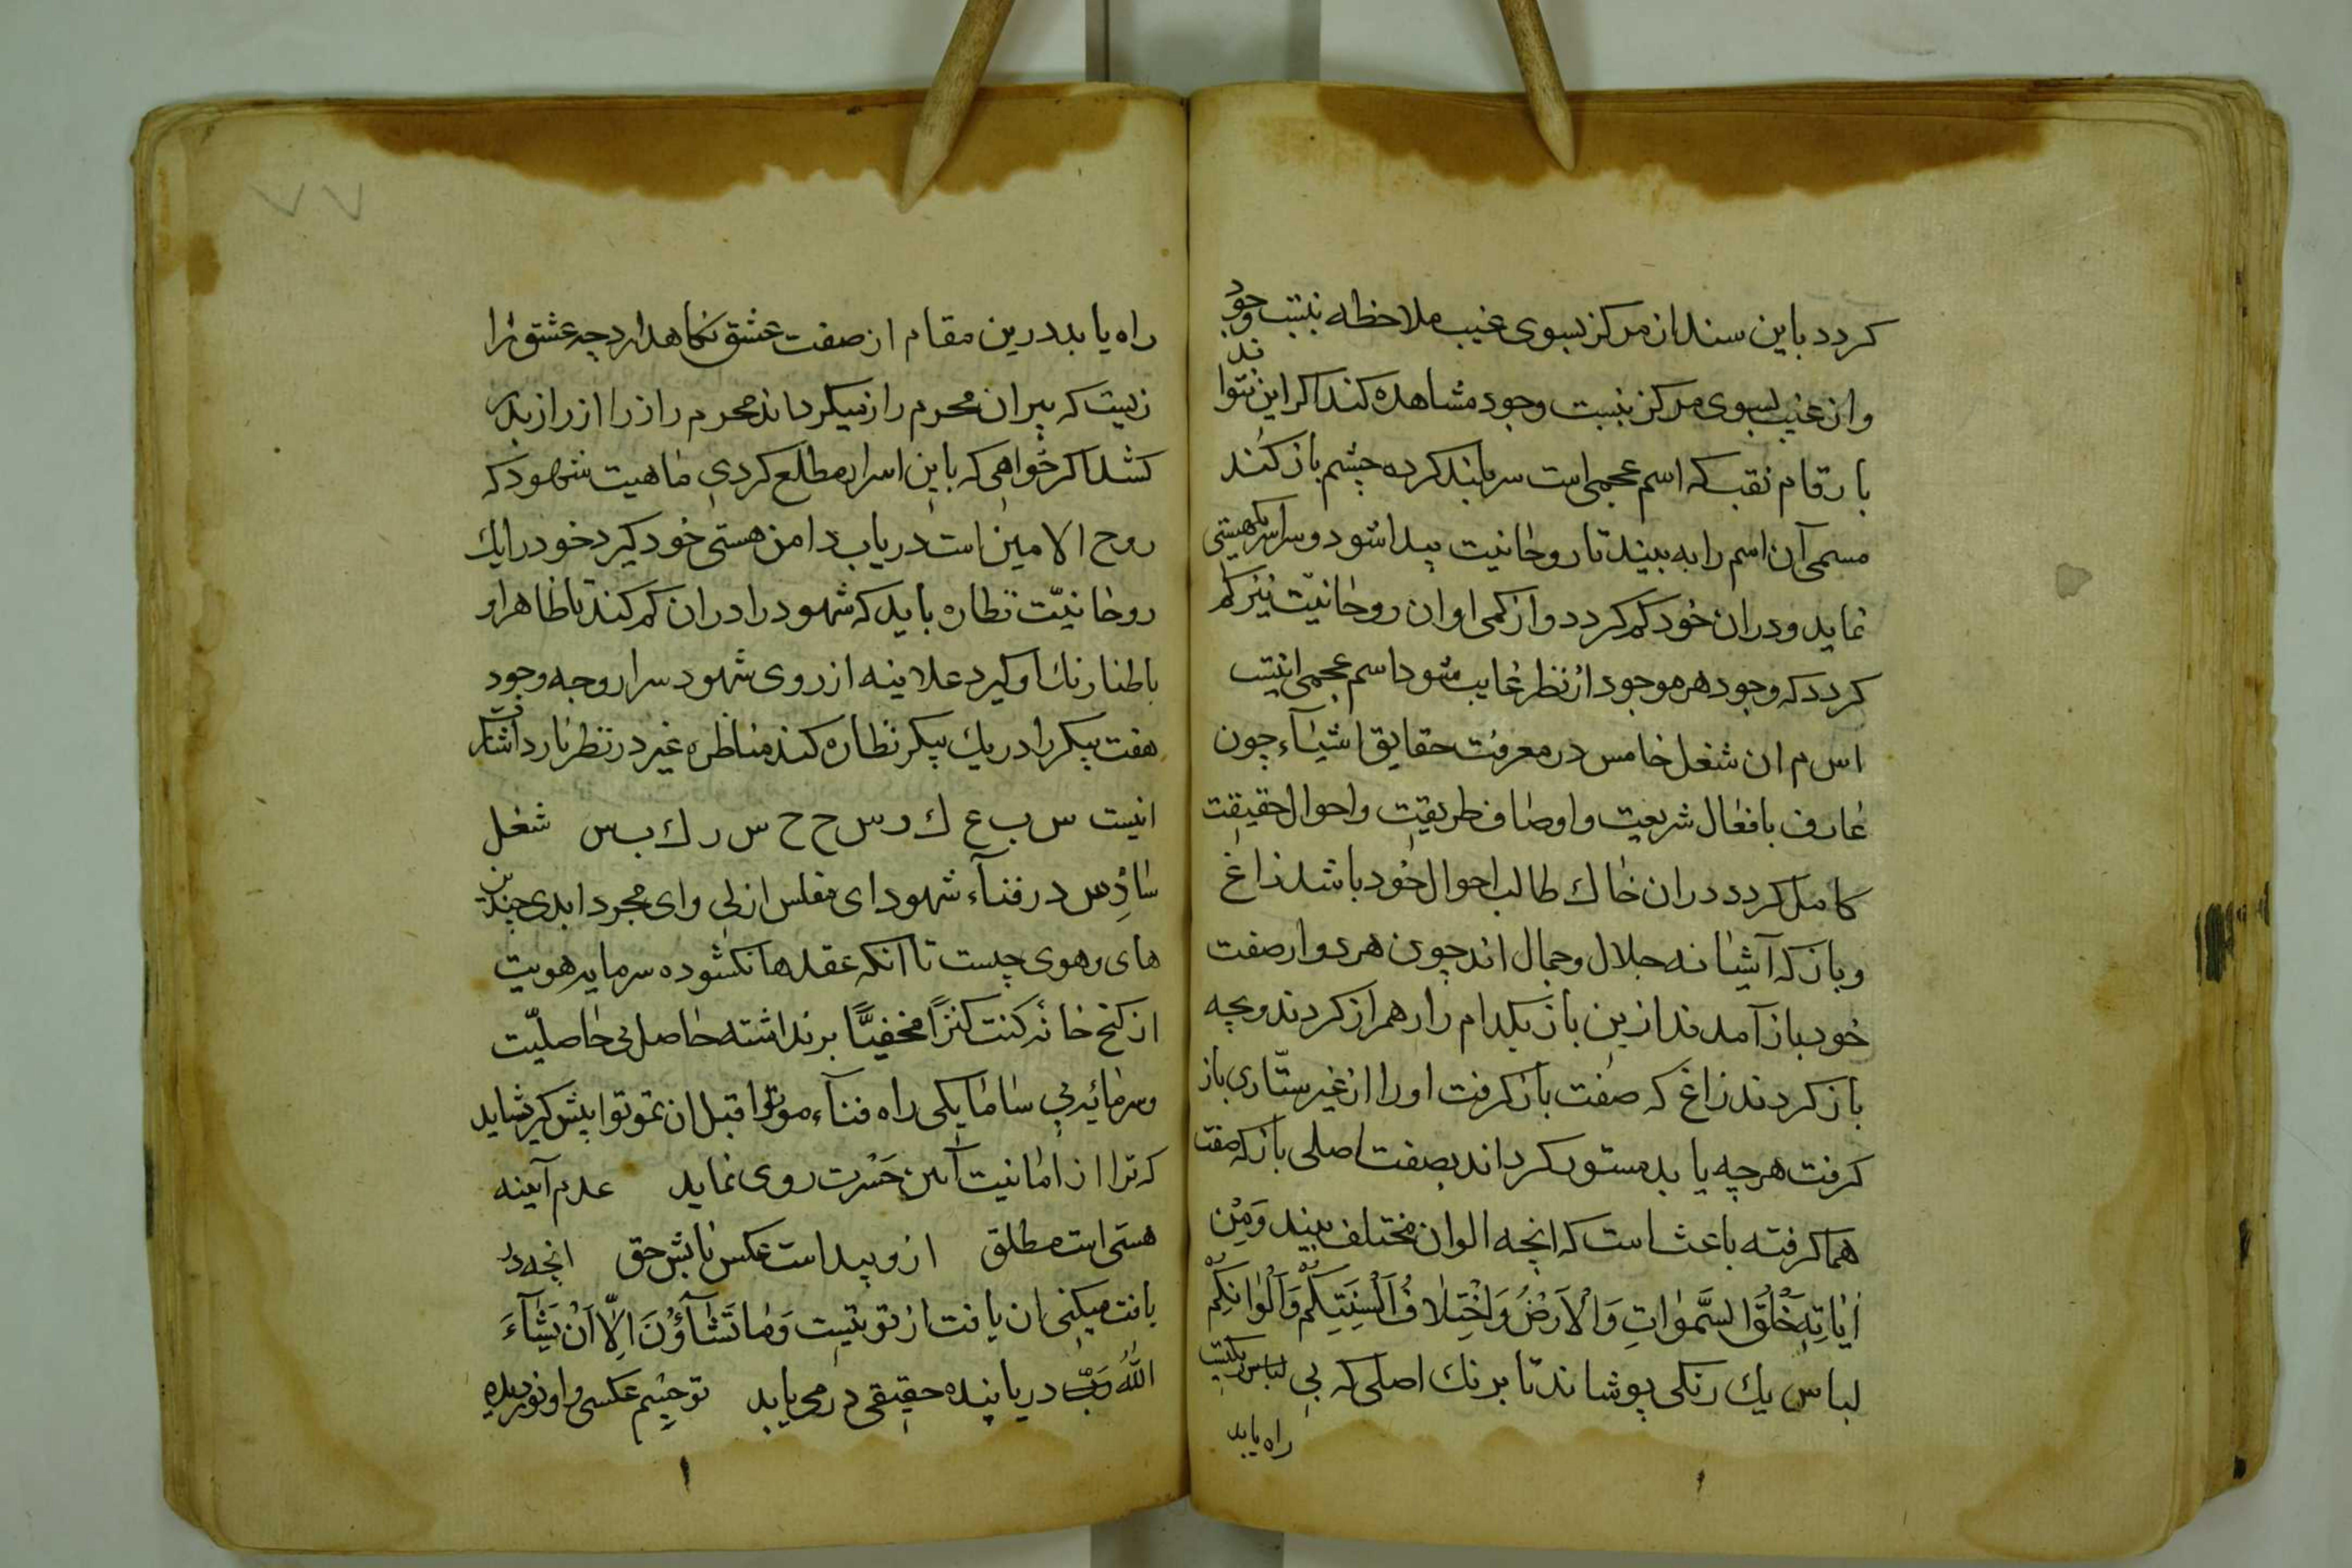 کردد باین سند از مرکز بسوی غیب ملاحظه بنیت وجود
واز غیب بسوی مرکز بنیت وجود مشاهده کند اکر این نتواند
با رقام نقب که اسم عجمی است سر بلند کرده چشم باز کند
مسمی آن اسم را به بیند تا روحانیت پیدا شود و سراسر یک هیستی
نماید و دران خود کم کردد و از کمی او ان روحانیّت نیز کم
کردد که وجود هر موجود از نظر غایب شود اسم عجمی اینست
اس م ان شغل خامس در معرفت حقایق اشیآء چون
عارف بافعال شریعت و اوصاف طریقت و احوال حقیقت
کامل کردد دران خاك طالب احوال خود باشد زاغ
و باز که آشیانه جلال و جمال اند چون هر دو از صفت
خود باز آمدند ازین باز یکدام را رهم راز کردند و بچه
باز کردند زاغ که صفت باز کرفت او را از غیر ستّاری باز
کرفت هرچه یابد مستور کرداند بصفت اصلی باز که صفت
هما کرفته باعث است که انچه الوان مختلف بیند وَمِنْ
اٰیاتِهِ خَلْقُ السَّمٰواتِ وَالْاَرْضُ وَاخْتِلٰافُ اَلْسِنَتِكُمْ وَاَلْوٰانِكُمْ
لباس یك رنکی پوشاند تا برنك اصلی که بی لباس یکیست
راه یابد
۷۷
راه یابد درین مقام از صفت عشق نکاهدارد چه عشق را
زیبت که پیران محرم راز نیکرداند محرم راز را از راز بدر
کشد اکر خواهی که باین اسرار مطلع کردی ماهیت شهود که
روح الامین است دریاب دامن هستی خود کیرد خود را یك
روحانیّت نظاره باید که شهود را دران کم کند تا ظاهرا و
باطنا رنك او کیرد علانیه از روی شهود سرا روجه وجود
هفت پیکر را در یك پیکر نظاره کند مناظره غیر در نظر نارد
انیست س ب ع ك ر س ح ح س ر ك ب س شغل
سادِس در فنآء شهود ای مفلس ازلی وای مجرد ابدی چندین
های و هوی چیست تا آنکه عقدها نکشوده سرمایه هویت
از کنج خانه کنت کنزاً مخفیّاً برنداشته حاصل بی حاصلیّت
و سرمائه بی سامانیکی راه فنآء موتوا قبل ان تموتوا پیش کیر شاید
که ترا از امانیت آمن حَسْرت روی نماید عدم آیینه
هستی است مطلق ازو پیداست عکس تابش حق انچه در
یافت میکنی ان یافت از تو نیست وَمٰا تَشٰآؤُنَ اِلّا اَنْ یَشٰآءَ
اللّٰهُ رَبُّ دریابنده حقیقی درمی یابد تو چشم عکسی و او نور دیده